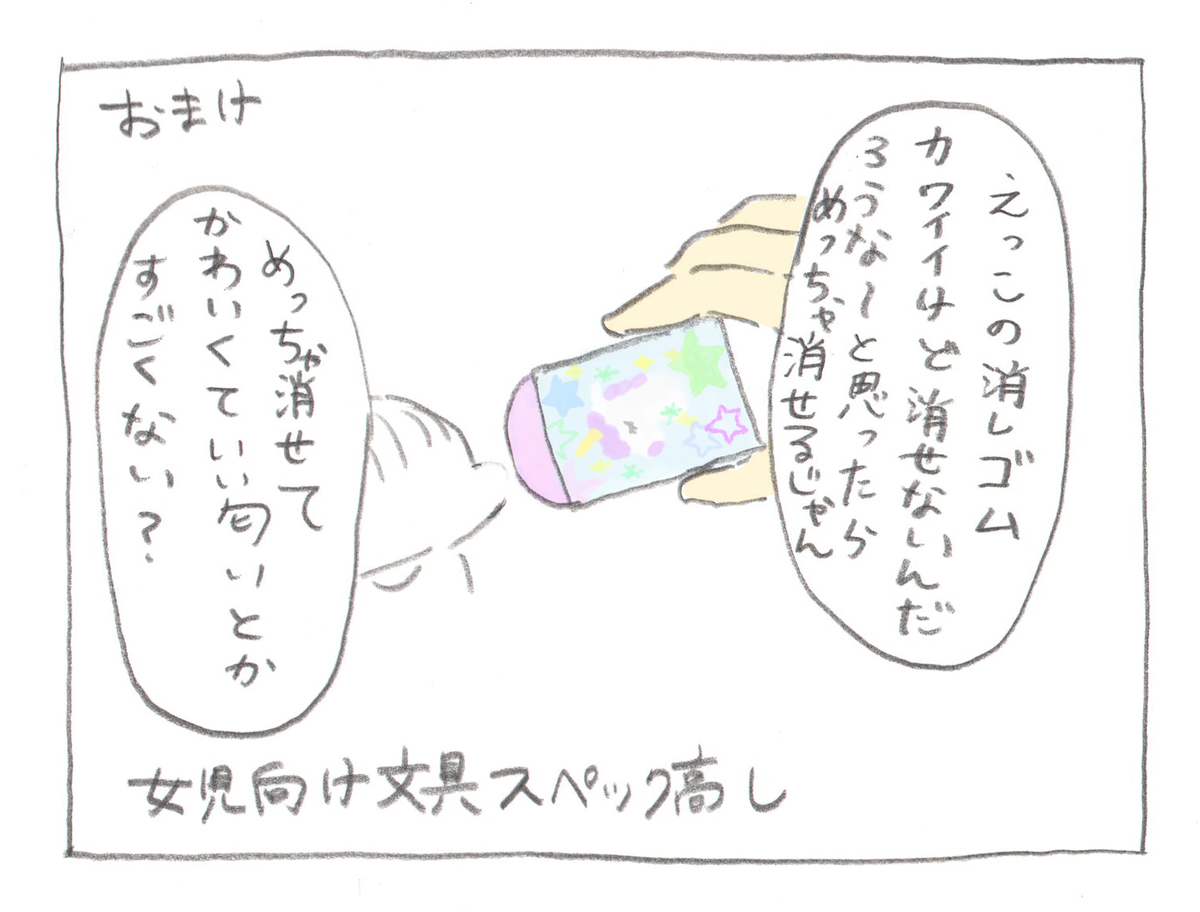 おまけ
えっこの消しゴム
カワイイけど消せないんだ
ろうな〜と思ったら
めっちゃ消せるじゃん
めっちゃ消せて
かわいくていい匂いとか
すごくない?
女児向け文具スペック高し